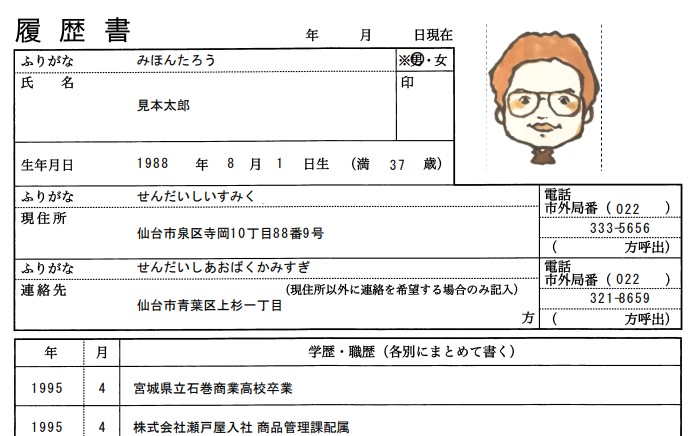 履歴書
年 月 日現在
ふりがな みほんたろう ※男・女
氏 名 印
見本太郎
生年月日 1988 年 8 月 1 日生 (満 37 歳)
ふりがな せんだいしいすみく
電話
市外局番 (022 )
現住所
仙台市泉区寺岡10丁目88番9号
333-5656
( 方呼出)
ふりがな せんだいしあおばくかみすぎ
電話
市外局番 (022 )
連絡先 (現住所以外に連絡を希望する場合のみ記入)
仙台市青葉区上杉一丁目
方
321-8659
( 方呼出)
年 月 学歴・職歴(各別にまとめて書く)
1995 4 宮城県立石巻商業高校卒業
1995 4 株式会社瀬戸屋入社 商品管理課配属